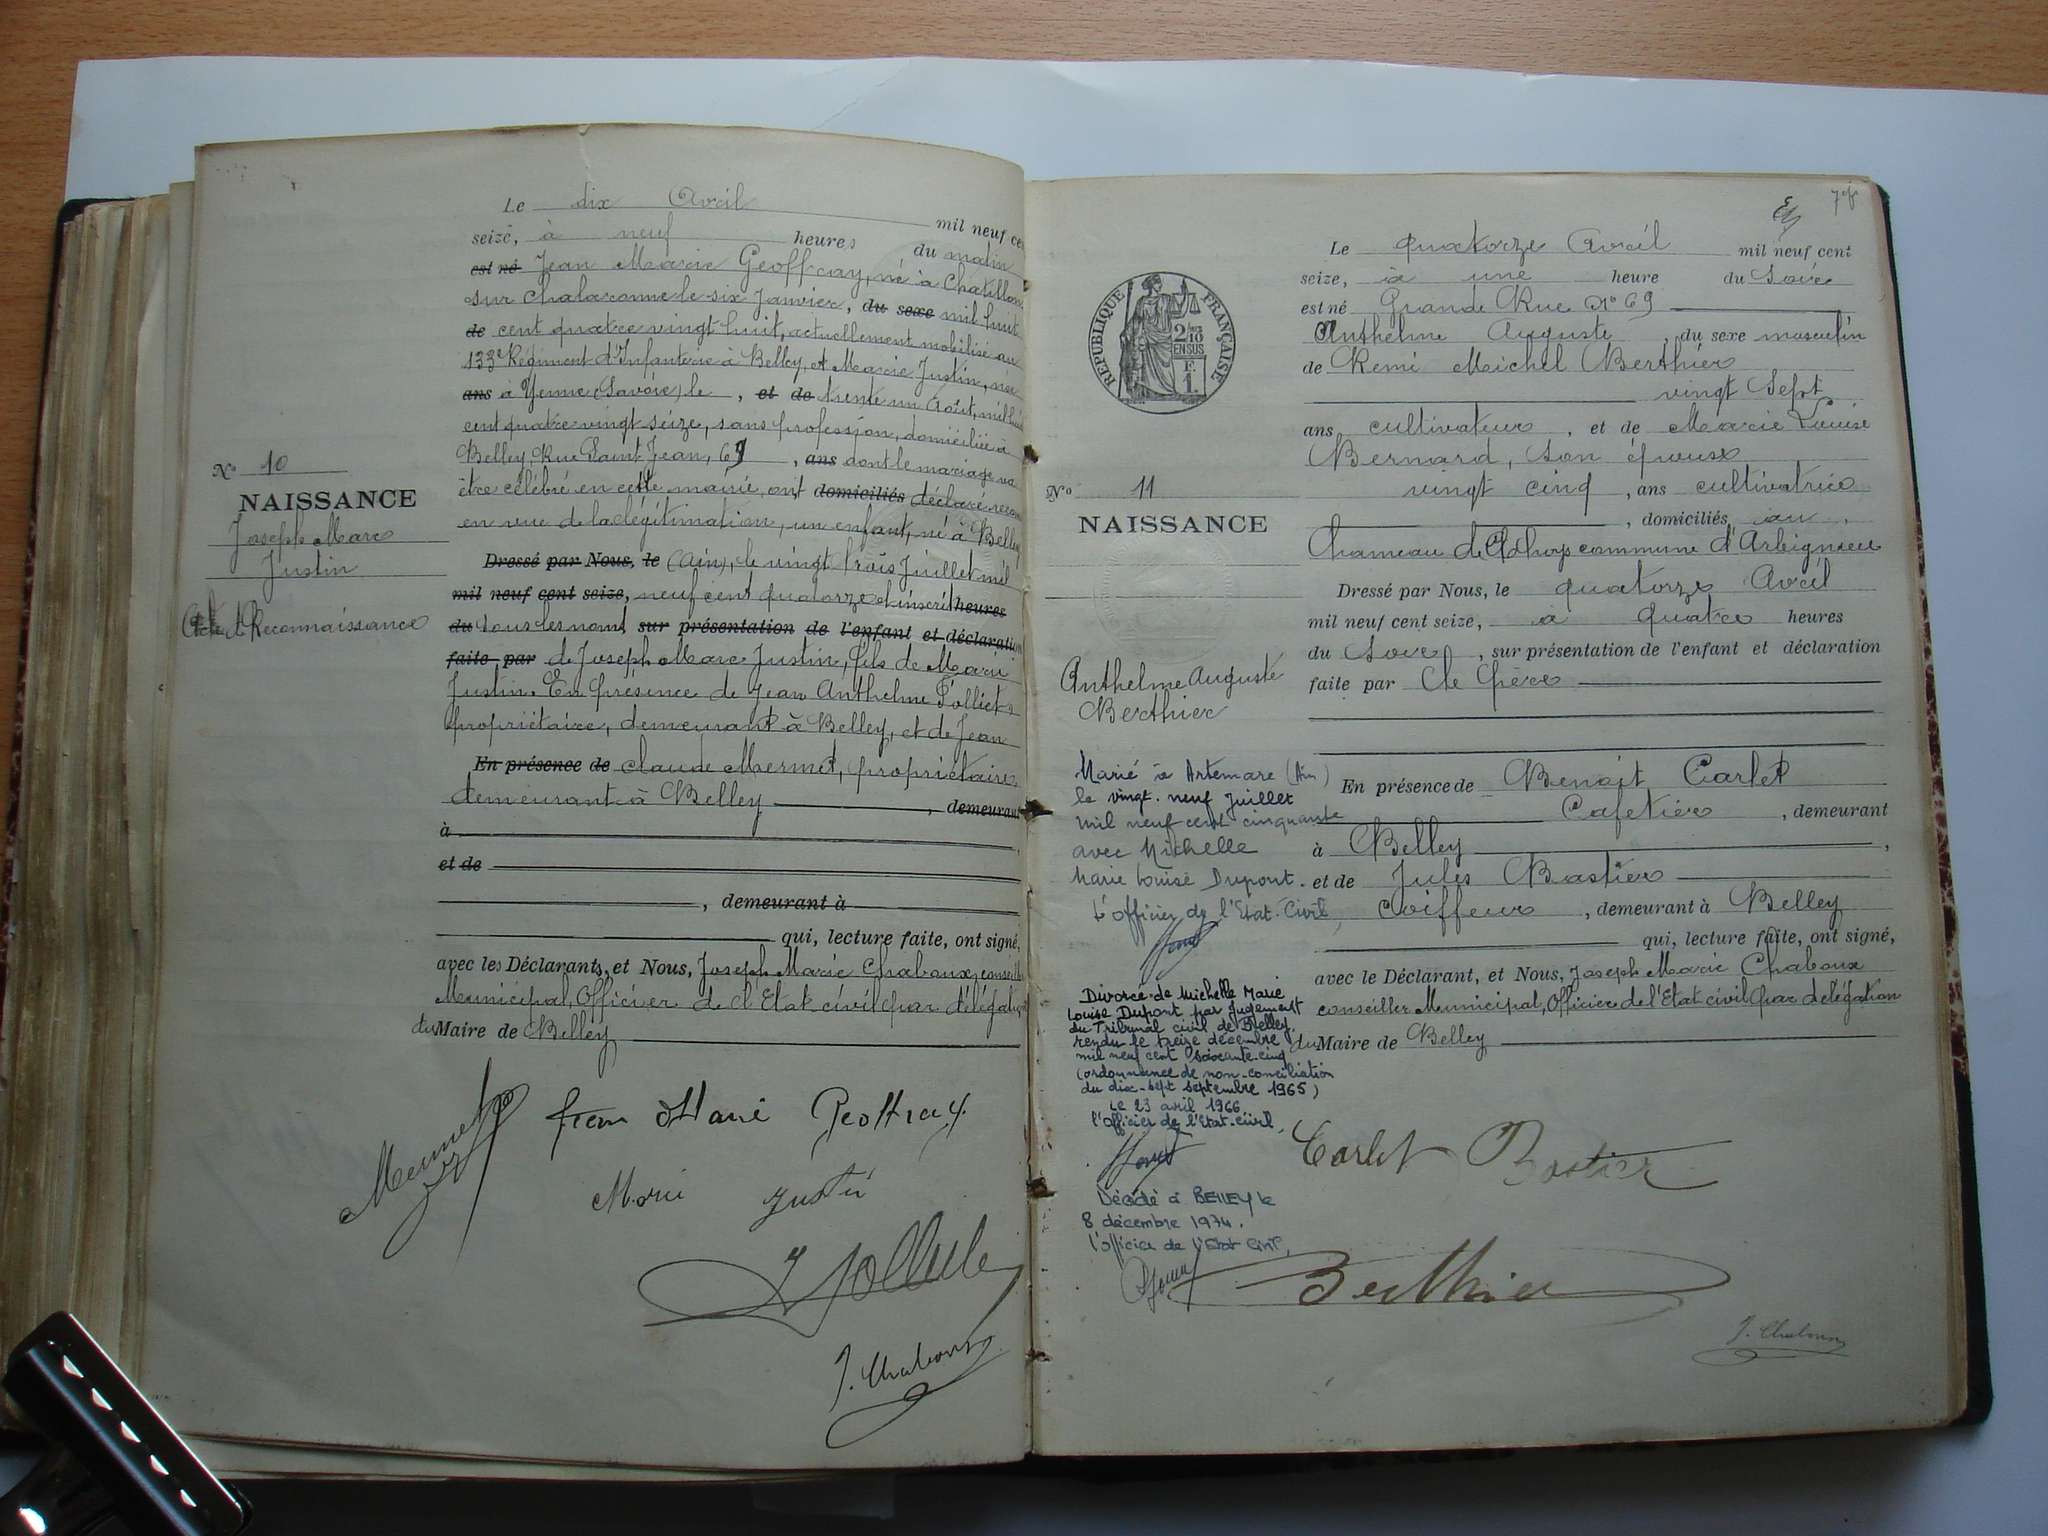 Le dix Avril mil neuf cent
seize, à neuf heures du matin
est né Jean Marie Geoffray, né à Chatillon
sur Chalaronne le six Janvier, du sexe mil huit
de cent quatre vingt huit, actuellement mobilisé au
133e Régiment d'Infanterie à Belley, et Marie Justin, née
ans à Yenne (Savoie) le , et de trente un Août, mil huit
cent quatre vingt seize, sans profession, domiciliée à
Belley, Rue Saint Jean, 69 , ans dont le mariage va
être célébré en cette mairie, ont domiciliés déclaré
en vue de la légitimation, un enfant, né à Belley
Dressé par Nous, le (Ain), le vingt trois Juillet mil
mil neuf cent seize, neuf cent quatorze et inscrit heures
du sous les noms sur présentation de l'enfant et déclaration
faite par de Joseph Marc Justin, fils de Marie
Justin. En présence de Jean Anthelme Folliet
propriétaire, demeurant à Belley, et de Jean
En présence de Claude Mermet, propriétaire
demeurant à Belley , demeurant
à
et de
, demeurant à
qui, lecture faite, ont signé,
avec les Déclarants, et Nous, Joseph Marie Chaboux, conseiller
Municipal, Officier de l'Etat civil par délégation
du Maire de Belley
No 10
NAISSANCE
Joseph Marc
Justin
Acte de Reconnaissance
Mermet
Jean Marie Geoffray
Marie Justin
J. Chaboux
Le quatorze Avril mil neuf cent
seize, à une heure du Soir
est né Grande Rue No 69
Anthelme Auguste , du sexe masculin
de Remi Michel Berthier
vingt Sept
ans cultivateur , et de Marie Louise
Bernard, son épouse
vingt cinq , ans cultivatrice
, domiciliés au
hameau de Thoys commune d'Arbignieu
Dressé par Nous, le quatorze Avril
mil neuf cent seize, à quatre heures
du Soir , sur présentation de l'enfant et déclaration
faite par le Père
En présence de Benoit Carlet
Cafetier , demeurant
à Belley ,
et de Jules Bastier
coiffeur , demeurant à Belley
qui, lecture faite, ont signé,
avec le Déclarant, et Nous, Joseph Marie Chaboux
conseiller Municipal, Officier de l'Etat civil par délégation
du Maire de Belley
RÉPUBLIQUE FRANÇAISE
2/10
EN SUS
1 F.
No 11
NAISSANCE
Anthelme Auguste
Berthier
Marié à Artemare (Ain)
le vingt-neuf Juillet
mil neuf cent cinquante
avec Michelle
Marie Louise Dupont.
L'officier de l'Etat-Civil,
Divorce de Michelle Marie
Louise Dupont par jugement
du Tribunal civil de Belley,
rendu le treize décembre
mil neuf cent soixante-cinq
(ordonnance de non-conciliation
du dix-sept septembre 1965)
Le 23 avril 1966
l'officier de l'Etat-civil,
Décédé à BELLEY le
8 décembre 1974.
l'officier de l'Etat Civil,
Carlet Bastier
Berthier
J. Chaboux